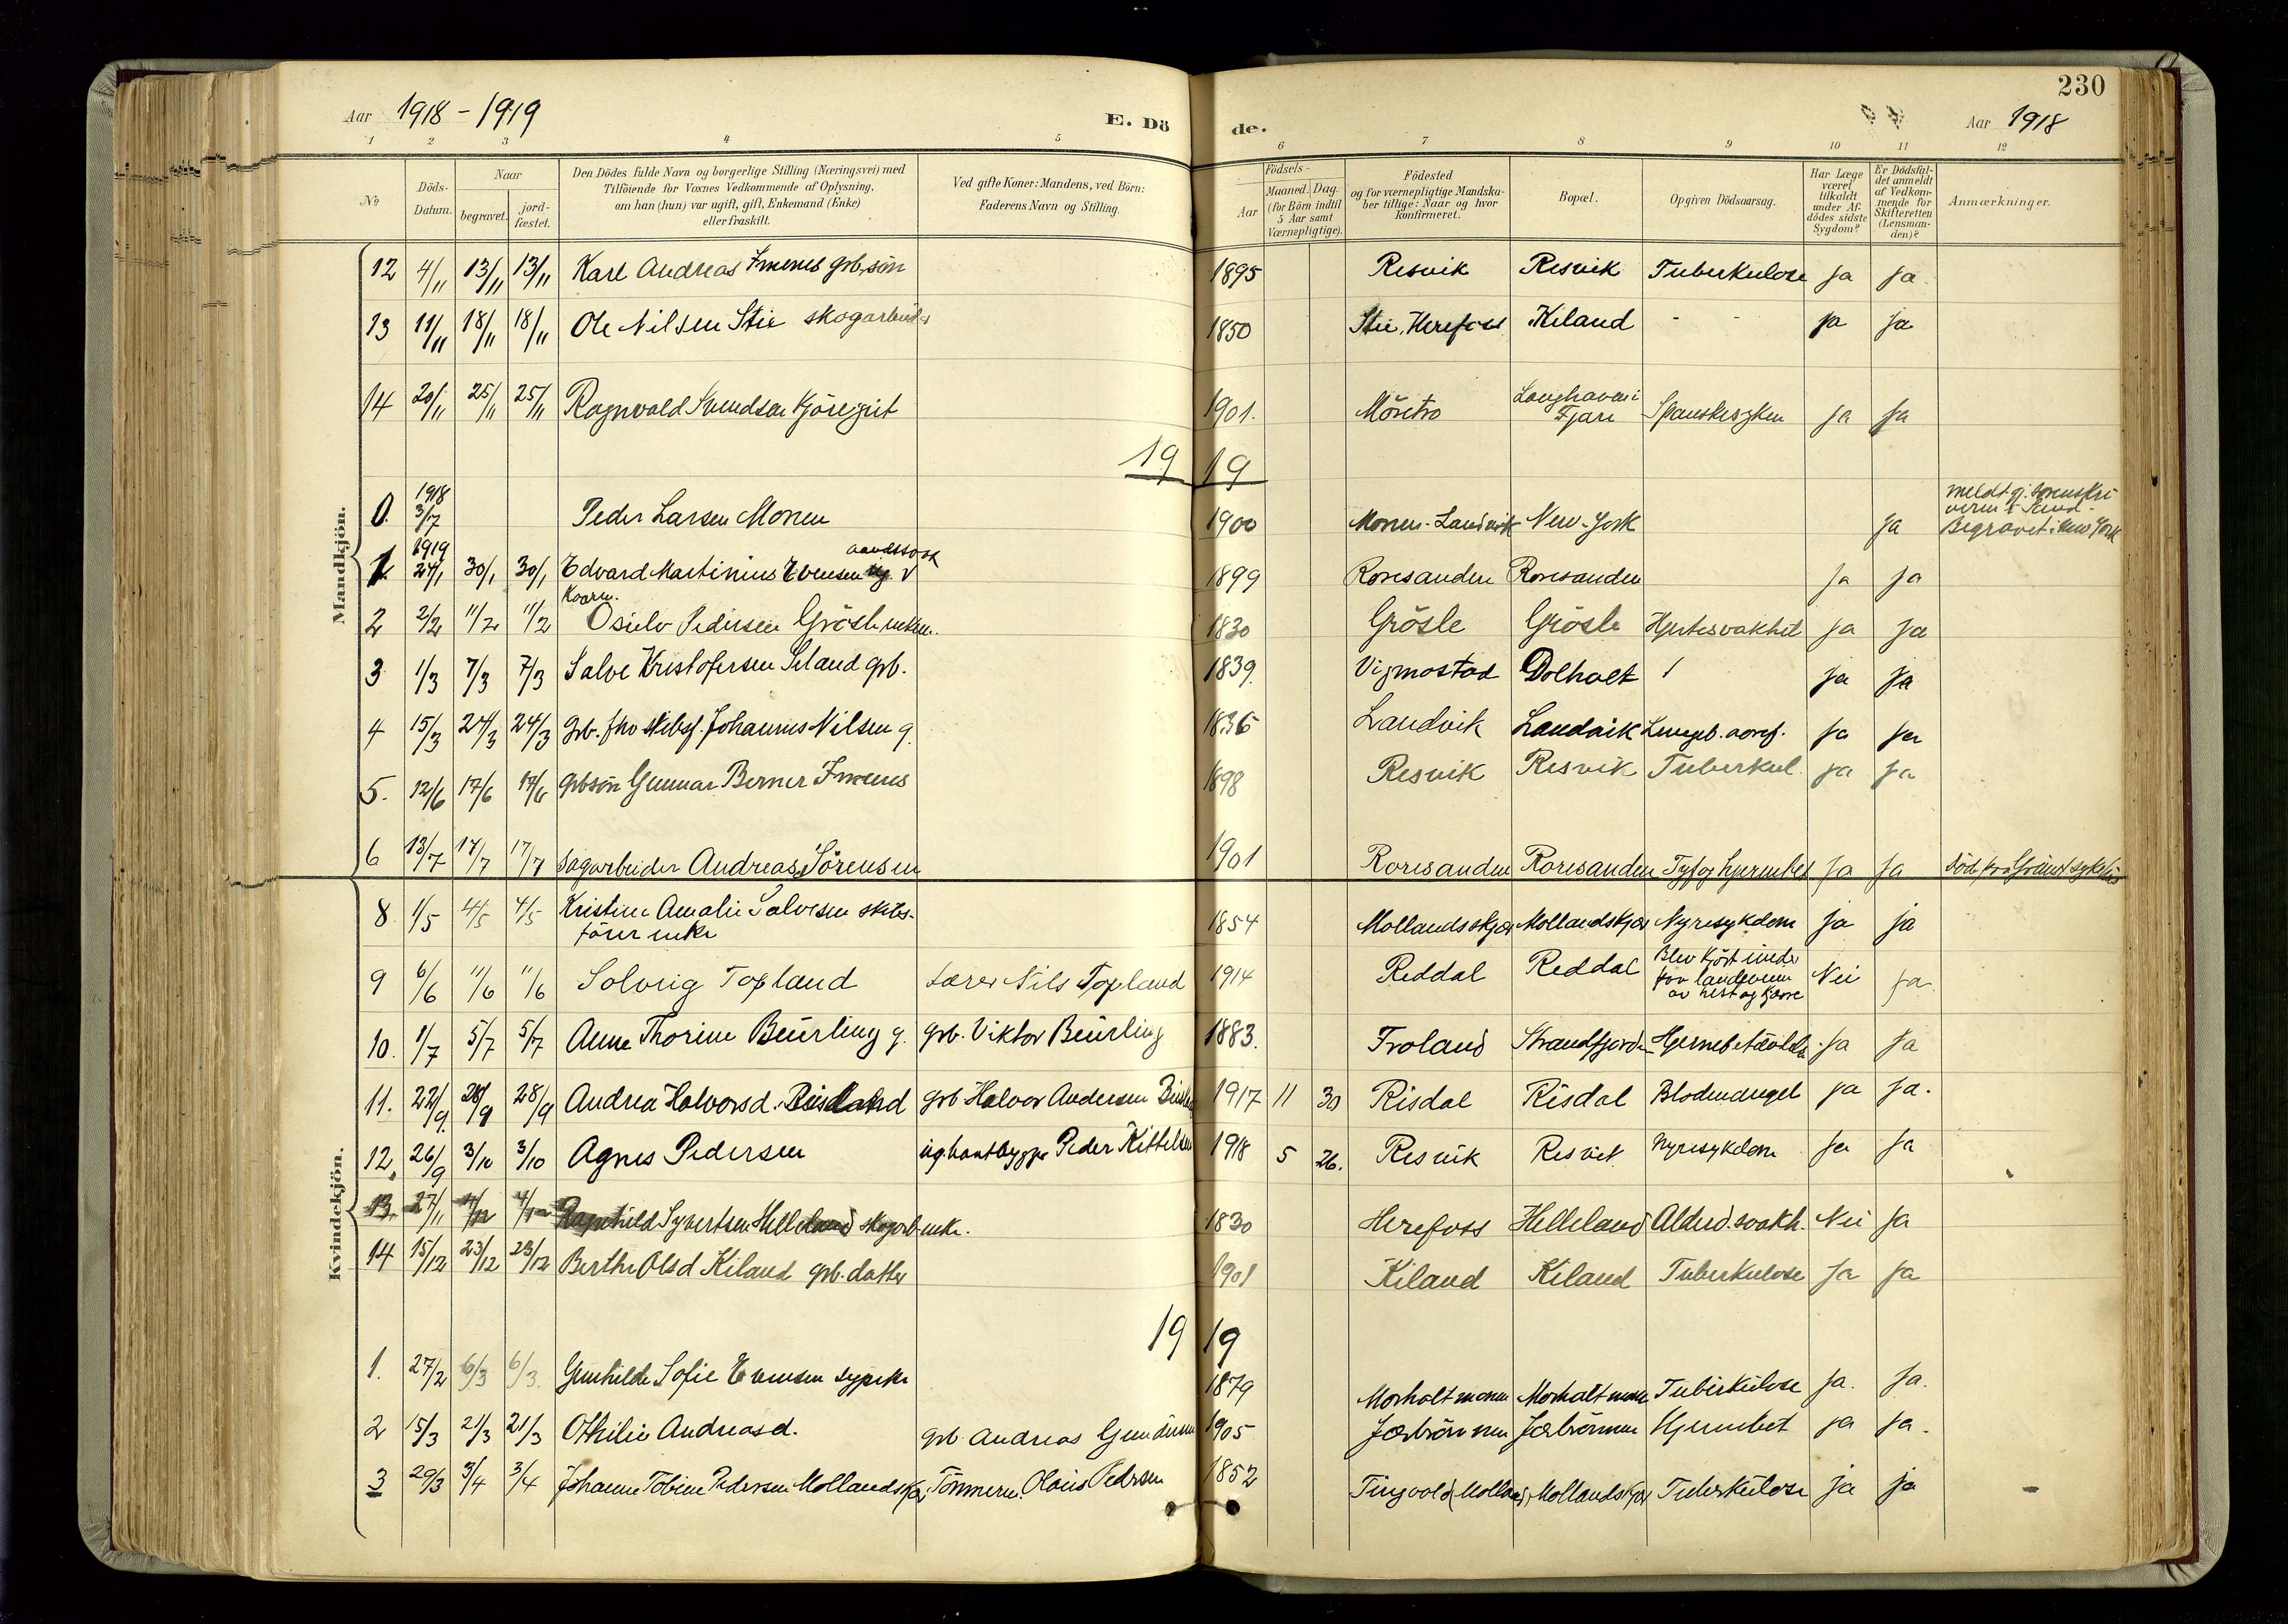 230
Aar 1918 - 1919 E. Döde. Aar 1918
1 2 3 4 5 6 7 8 9 10 11 12
№
Döds-Datum.
Naar
begravet.
jord-fæstet.
Den Dödes fulde Navn og borgerlige Stilling (Næringsvei) med
Tilföiende for Voxnes Vedkommende af Oplysning,
om han (hun) var ugift, gift, Enkemand (Enke)
eller fraskilt.
Ved gifte Koner: Mandens, ved Börn:
Faderens Navn og Stilling.
Födsels-
Aar
Maaned. Dag.
(for Börn indtil
5 Aar samt
Værnepligtige).
Födested
og for værnepligtige Mandska-
ber tillige: Naar og hvor
konfirmeret.
Bopæl.
Opgiven Dödsaarsag.
Har Læge
været
tilkaldt
under Af-
dödes sidste
Sygdom?
Er Dödsfal-
det anmeldt
af Vedkom-
mende for
Skifteretten
(Lensman-
den)?
Anmærkninger.
Mandkjön.
12 4/11 13/11 13/11 Karl Andreas Imenes grb.sön 1895 Resvik Resvik Tuberkulose ja ja
13 11/11 18/11 18/11 Ole Nilsen Stie skogarbeider 1850 Stie, Herefoss Kiland - - ja ja
14 20/11 25/11 25/11 Ragnvald Svendsen 1901. Möretro Fjære Spanskesyken ja ja
19 19
0. 1918 3/7 Peder Larsen Monen 1900 Monen-Landvik New-York ja meldt gj. Sorenskri-
veren i Sand.
Begravet i New York
1. 1919 24/1 30/1 30/1 Edvard Martinius Evensen ug. aandssvak 1899 Roresanden Roresanden ja ja
2 2/2 11/2 11/2 Kaarm. Osulv Pedersen Grösle enkem. 1830 Grösle Grösle Hjertesvakhet ja ja
3 1/3 7/3 7/3 Salve Kristofersen Seland grb. 1839. Vigmostad Dolholt ja ja
4 15/3 24/3 24/3 grb. fhv skibsf. Johannes Nilsen g. 1836 Landvik Landvik ja ja
5. 12/6 17/6 17/6 grbsön Gunnar Berner Imenes 1898 Resvik Resvik Tuberkul. ja ja
6 13/7 17/7 17/7 Sagarbeider Andreas Sörensen 1901 Roresanden Roresanden Tyf og hjernebet ja ja Död paa Grimst sykehus
Kvindekjön.
8. 1/5 4/5 4/5 Kristine Amalie Salvesen skibs-
förer enke 1854 Mollandsskjær Mollandskjær Nyresykdom ja ja
9 6/6 11/6 11/6 Solveig Topland Lærer Nils Topland 1914 Reddal Reddal Blev kjört under
paa landeveien
av hest og kjærre Nei ja
10. 1/7 5/7 5/7 Anne Thorine Beurling g. grb. Viktor Beurling 1883. Froland Strandfjorden Hjernebetændelse ja ja
11. 22/9 28/9 28/9 Andrea Halvorsd. Risdal grb Halvor Andersen 1917 11 30 Risdal Risdal Blodmangel ja ja.
12. 26/9 3/10 3/10 Agnes Pedersen ug. baatbygger Peder Kittelsen 1918 5 26. Resvik Resvik Nyresykdom ja ja
13. 27/11 4/12 4/12 Ragnhild Syvertsen Helleland skogarb. enke. 1830 Herefoss Helleland Alderd. svakh. Nei ja
14 15/12 23/12 23/12 Berthe Olsd Kiland grb. datter 1901 Kiland Kiland Tuberkulose ja ja
19 19
1. 27/2 6/3 6/3. Gunhilde Sofie Evensen sypike 1879 Morholtmoen Morholtmoen Tuberkulose ja. ja.
2 15/3 21/3 21/3 Othilie Andreasd. grb. Andreas Gundersen 1905 Jærbrönnen Jærbrönnen Hjernebet ja ja.
3 29/3 3/4 3/4 Johanne Tobine Pedersen Mollandskjær Tömmerm. Olaus Pedersen 1852 Tingvold (Molland) Mollandskjær Tuberkulose ja ja